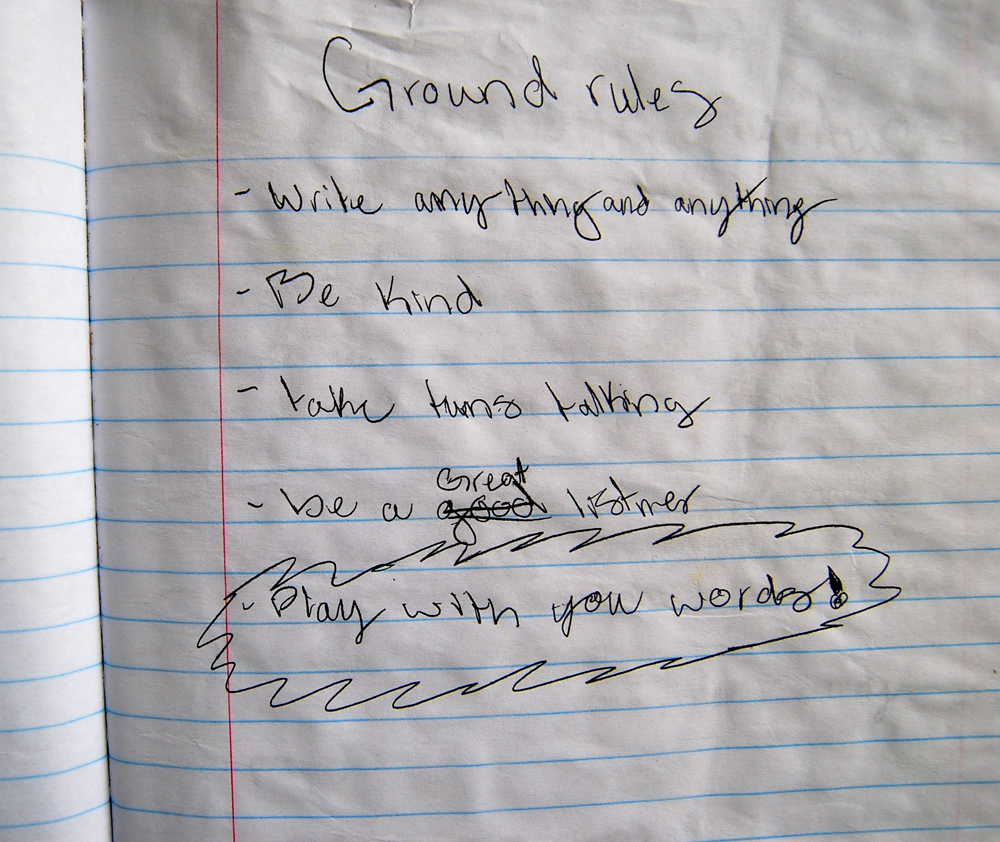 Ground rules
- Write any thing and anything
- Be Kind
- take turns talking
- be a Great listner
- Play with you words!